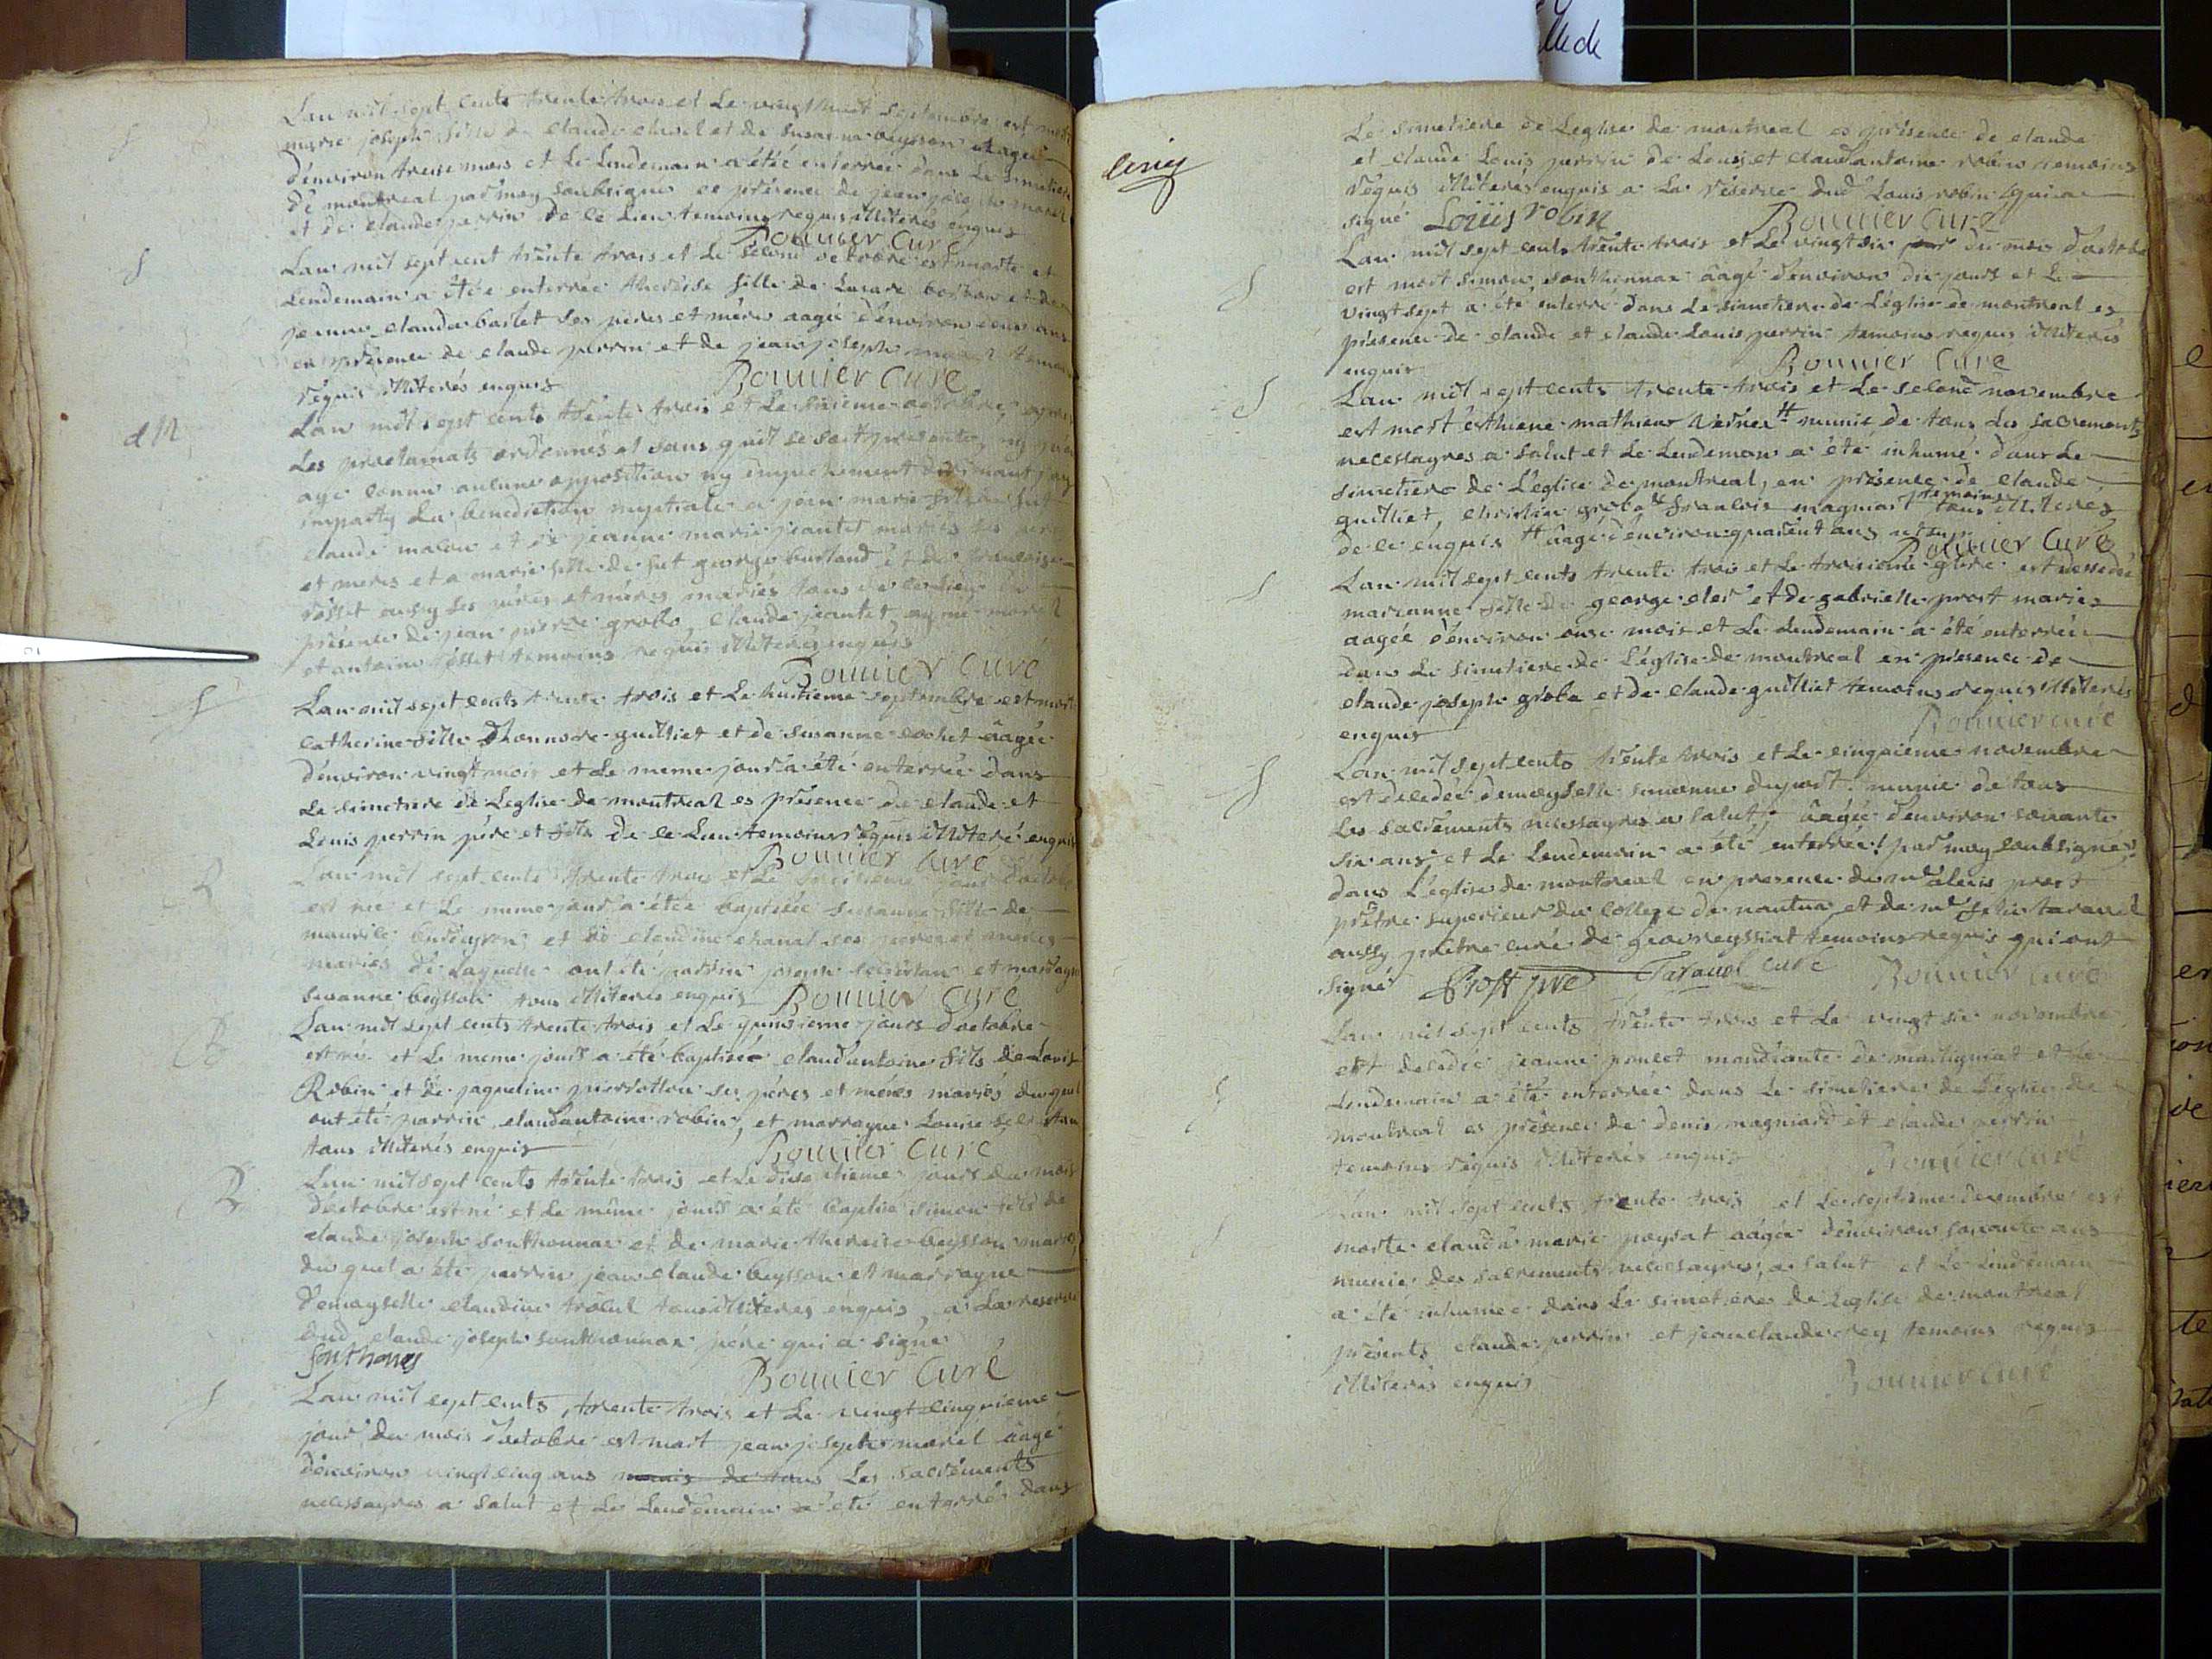 Lan mil sept cents trente trois et le vingt huit septembre est morte
marie joseph fille de claude clerel et de susanne beysson aagée
d'environ treise mois et le lendemain a étée enterrée dans le simetiere
de montreal par moy soubsigné es présence de jean joseph morel
et de claude perrin de ce lieu temoins requis illiterés enquis
Bonnier Curé
Lan mil sept cent trente trois et le second octobre est morte et
lendemain a étée enterrée theraise fille de Lasare et de
jeanne clauda bartet ses péres et méres aagée d'environ deux ans
en présence de claude perrin et de jean joseph morel temoins
réquis illiterés enquis
Bonnier Curé
dM
Lan mil sept cents trente trois et le sixieme octobre apres
les proclamats ordonnés et sans quil se soit presenté ny que j'
aye connu aucune opposition ny empechement dirimant jay
imparty la benediction nuptiale a jean marie fils de fut
claude malon et de jeanne marie jeantet mariés ses peres
et meres et a marie fille de fut george burland et de francoise
rosset aussy ses péres et méres mariés tous de ce lieu en
présence de jean pierre grobo, claude jeantet, ayme morel
et antoine rosset temoins requis illiterés enquis
Bonnier Curé
Lan mil sept cents trente trois et le huitieme septembre est morte
catherine fille d'honnore guilliet et de susanne cochet aagée
d'environ vingt mois et le meme jour a été enterrée dans
le simetiere de leglise de montreal es présence de claude et
Louis perrin pére et fils de ce lieu temoins réquis illiteré enquis
Bonnier Curé
B
Lan mil sept cents trente trois et le jour d'octobre
est née et le meme jour a étée baptisée susanne fille de
maurile burdeyron et de claudine chanal ses peres et meres
mariés de laquelle ont été parrin joseph et marrayne
susanne beysson tous illiteres enquis Bonnier Curé
B
Lan mil sept cents trente trois et le quinsieme jours d'octobre
est né et le meme jours a été baptiséé claud'antoine fils de Louis
Robin et de jaqueline pierrotton ses péres et méres mariés duquel
ont été parrin claud'antoine robin, et marrayne Louise
tous illiterés enquis
Bonnier Curé
B
Lan mil sept cents trente trois et le diseptieme jours du mois
d'octobre est né et le même jours a été baptisé simon fils de
claude joseph sonthonnax et de marie theraise beysson mariés
du quel a été parrin jean claude beysson et marrayne
demayselle claudine trocul tous illiteres enquis, a la reserve
dud claude joseph sonthonnax pére qui a signé
Sonthonax
Bonnier Curé
Lan mil sept cents trente trois et le vingt cinquieme
jour du mois d'octobre est mort jean joseph morel aagé
d'environ vingt cinq ans munis de tous les sacréments
necessayres a salut et le lendemain a été enterré dans
Le simetiere de Leglise de montreal es présence de claude
et claude Louis perrin de et claud'antoine robin temoins
réquis illiterés enquis a la réserve dud Louis robin qui a
signé Loüis robin Bonnier Curé
Lan mil sept cents trente trois et le vingt six du mois d'octobre
est mort simon sonthonnax aagé d'environ dix jours et le
vingt sept a été enterré dans le simetiere de l'eglise de montreal es
présence de claude et claude Louis perrin temoins requis illiterés
enquis
Bonnier Curé
Lan mil sept cents trente trois et le second novembre
est mort esthiene mathieux # munis de tous les sacrements
necessayres a salut et le lendemain a été inhumé dans le
simetiere de l'eglise de montreal, en présence de claude
guilliet, christin grobo & francois magniart temoins tous illiteres
de ce enquis # aagé d'environ quarent ans
Bonnier Curé
Lan mil sept cents trente trois et le troisieme 9bre est decedée
marianne fille de george cler et de gabrielle prost mariés
aagée d'environ onse mois et le lendemain a été enterrée
dans le simetiere de l'église de montreal en présence de
claude joseph grobo et de claude guilliet temoins requis illiterés
enquis
Bonnier curé
Lan mil sept cents trente trois et le cinquieme novembre
est decedée demayselle simonne duport munie de tous
les sacréments necessayres a salut, aagée d'environ soixante
six ans, et le lendemain a été enterrée par moy soubsigné
dans l'église de montreal en presence de mr alexis prost
prêtre superieur du college de nantua et de mr felix taravel
aussy prêtre curé de geovreyssiat temoins requis qui ont
signé Prost pre Taravel curé Bonnier Curé
Lan mil sept cents trente trois et le vingt six novembre
est decedée jeanne poncet mandiante de martigniat et le
lendemain a été enterrée dans le simetiere de l'eglise de
montreal es présence de denis magniard et claude perrin
temoins réquis illiterés enquis
Bonnier Curé
Lan mil sept cents trente trois et le septieme decembre est
morte clauda marie poysat aagée d'environ soixante ans
munie des sacrements necessayres a salut et le lendemain
a été inhumée dans le simetiere de leglise de montreal
présents claude perrin et jean claude rey temoins requis
illiterés enquis
Bonnier curé